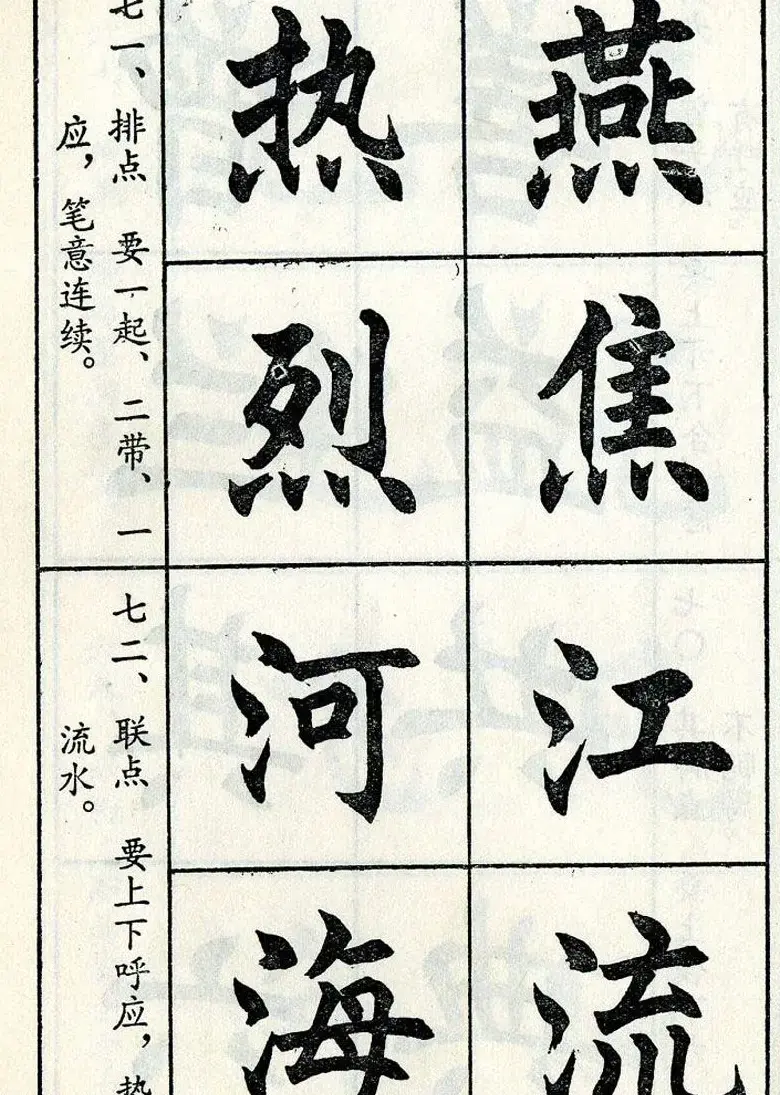 燕
热
焦
烈
七一、排点 要一起、二带、一
应，笔意连续。
江
河
流
海
七二、联点 要上下呼应，
流水。